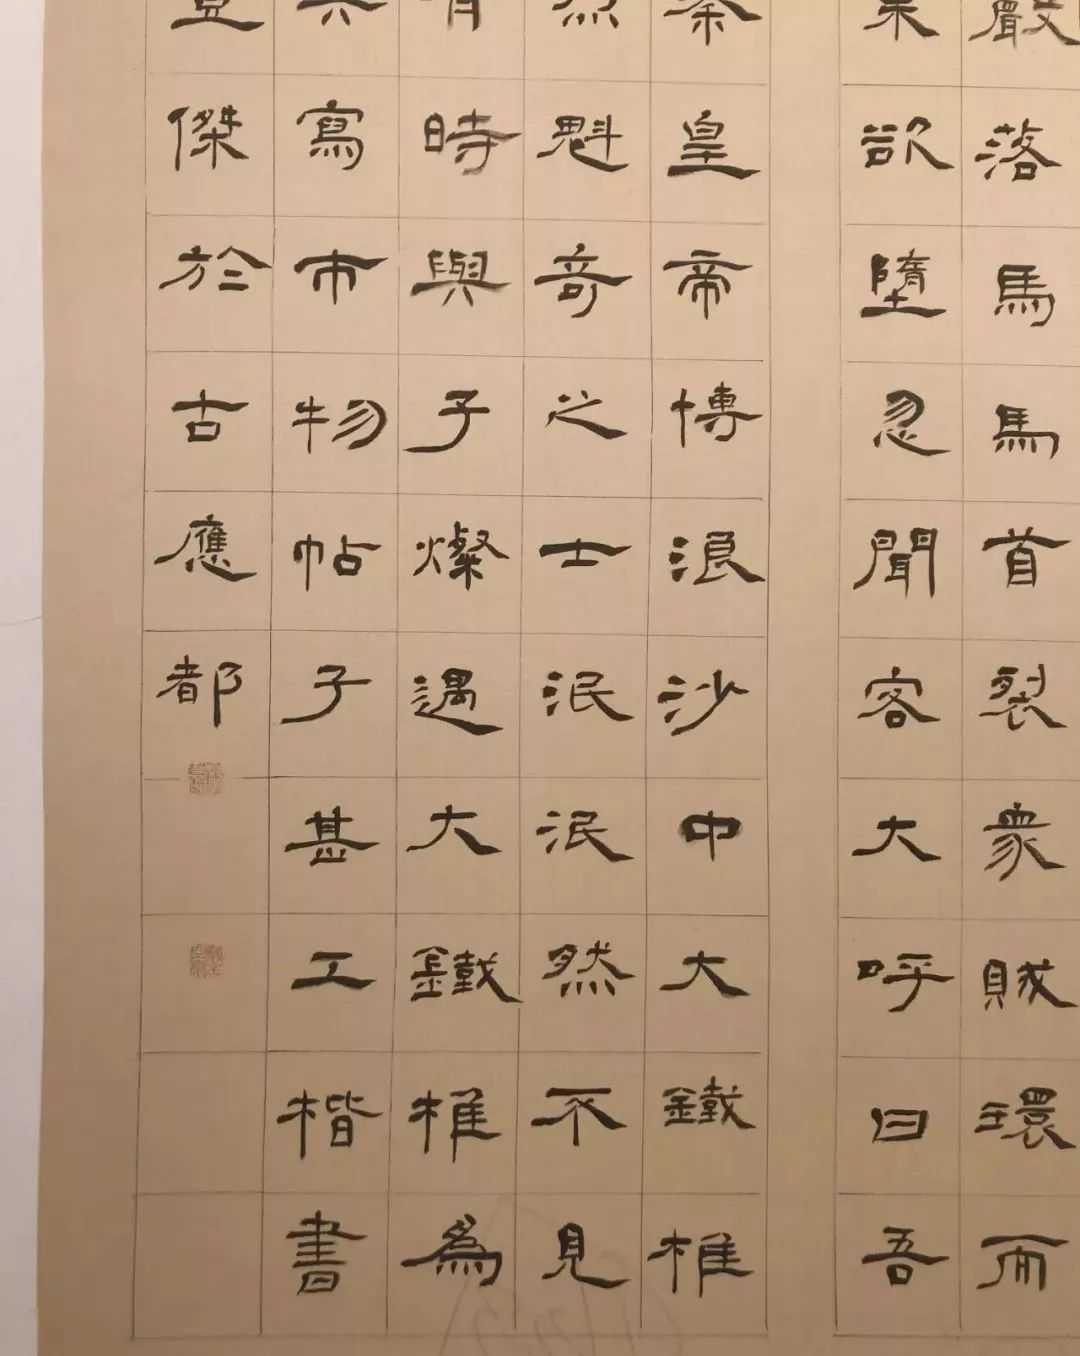 嚴落馬馬首裂衆賊環而
來欲墮忽聞客大呼曰吾
秦皇帝博浪沙中大鐵椎
然魁奇之士泯泯然不見
時與子燦遇大鐵椎爲
寫市物帖子甚工楷書
傑於古應都